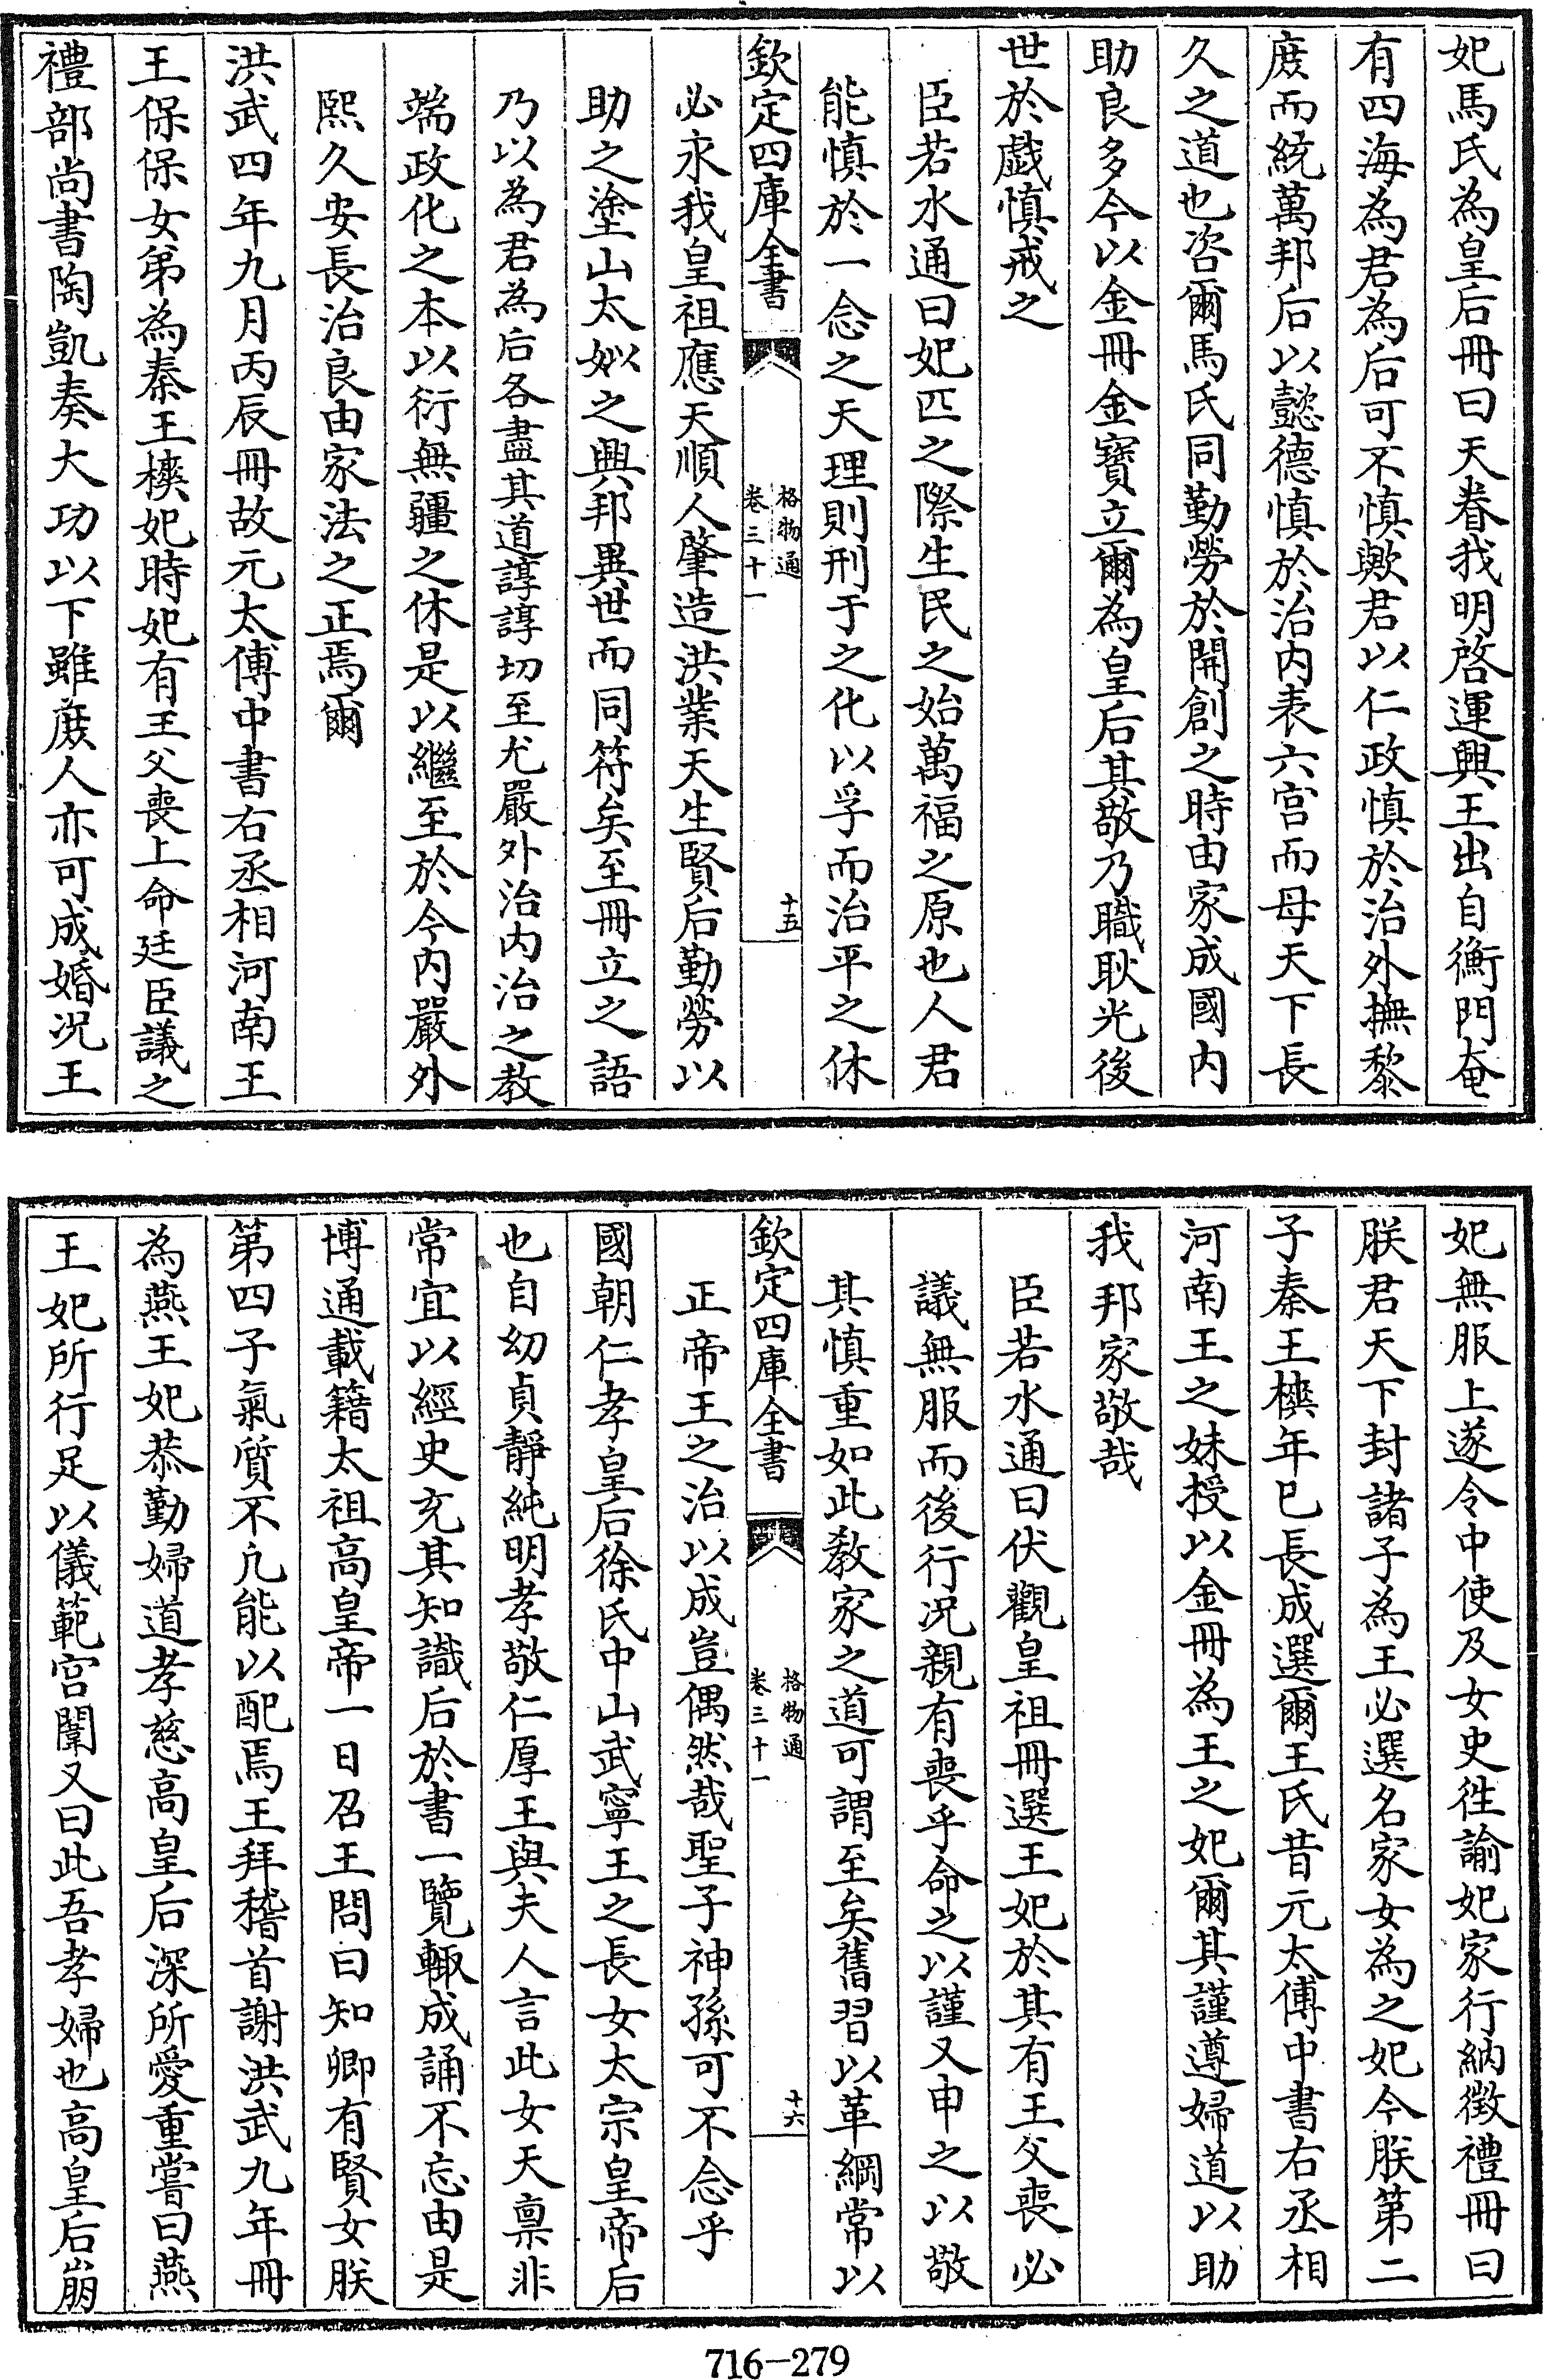 妃馬氏為皇后冊曰天眷我明啓運興王出自衡門奄
有四海為君為后可不慎歟君以仁政慎於治外撫黎
庶而統萬邦后以懿德慎於治内表六宫而母天下長
久之道也咨爾馬氏同勤勞於開創之時由家成國内
助良多今以金冊金寶立爾為皇后其敬乃職耿光後
世於戯慎戒之
臣若水通曰妃匹之際生民之始萬福之原也人君
能慎於一念之天理則刑于之化以孚而治平之休
欽定四庫全書
格物通
卷三十一
十五
必永我皇祖應天順人肇造洪業天生賢后勤勞以
助之塗山太姒之興邦異世而同符矣至冊立之語
乃以為君為后各盡其道諄諄切至尤嚴外治内治之教
端政化之本以衍無疆之休是以繼至於今内嚴外
熙久安長治良由家法之正焉爾
洪武四年九月丙辰冊故元太傅中書右丞相河南王
王保保女弟為秦王樉妃時妃有王父喪上命廷臣議之
禮部尚書陶凱奏大功以下雖庶人亦可成婚况王
妃無服上遂令中使及女史徃諭妃家行納徴禮冊曰
朕君天下封諸子為王必選名家女為之妃今朕第二
子秦王樉年巳長成選爾王氏昔元太傅中書右丞相
河南王之妹授以金冊為王之妃爾其謹遵婦道以助
我邦家敬哉
臣若水通曰伏觀皇祖冊選王妃於其有王父喪必
議無服而後行况親有喪乎命之以謹又申之以敬
其慎重如此教家之道可謂至矣舊習以革綱常以
欽定四庫全書
格物通
卷三十一
十六
正帝王之治以成豈偶然哉聖子神孫可不念乎
國朝仁孝皇后徐氏中山武寧王之長女太宗皇帝后
也自幼貞靜純明孝敬仁厚王與夫人言此女天禀非
常宜以經史充其知識后於書一覽輙成誦不忘由是
博通載籍太祖高皇帝一日召王問曰知卿有賢女朕
第四子氣質不凢能以配焉王拜稽首謝洪武九年冊
為燕王妃恭勤婦道孝慈高皇后深所愛重嘗曰燕
王妃所行足以儀範宫闈又曰此吾孝婦也高皇后崩
716-279